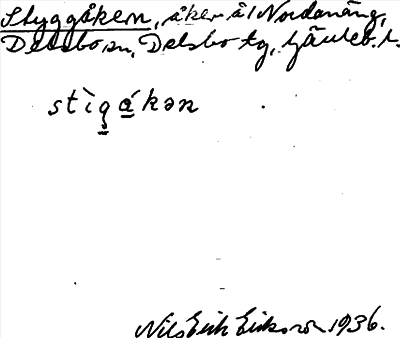 Styggåkern, åker å Nordanäng,
Delsbo sn, Delsbo tg, Gävleb. l.
stìgákən
Nils Erik Eriksson 1936.